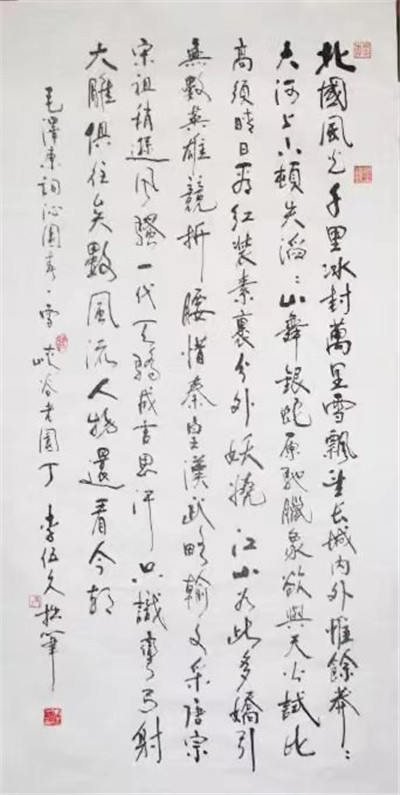 北國風光千里冰封萬里雪飄望长城内外惟餘莽〻
大河上下頓失滔〻山舞銀蛇原馳臘象欲與天公試比
高須晴日看红装素裹分外妖嬈江山如此多嬌引
無數英雄競折腰惜秦皇漢武略輸文采唐宗
宋祖稍遜风騷一代天骄成吉思汗只識彎弓射
大雕俱往矣數風流人物還看今朝
毛澤東詞沁園春·雪 峽谷老園丁 李伍久拙筆